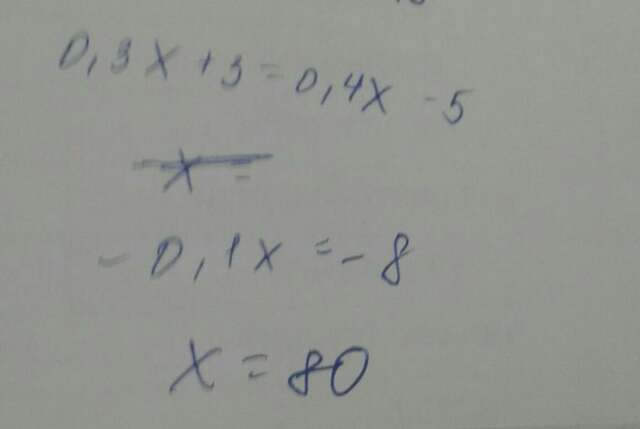 0,3x + 3 = 0,4x - 5
x =
- 0,1x = - 8
x = 80